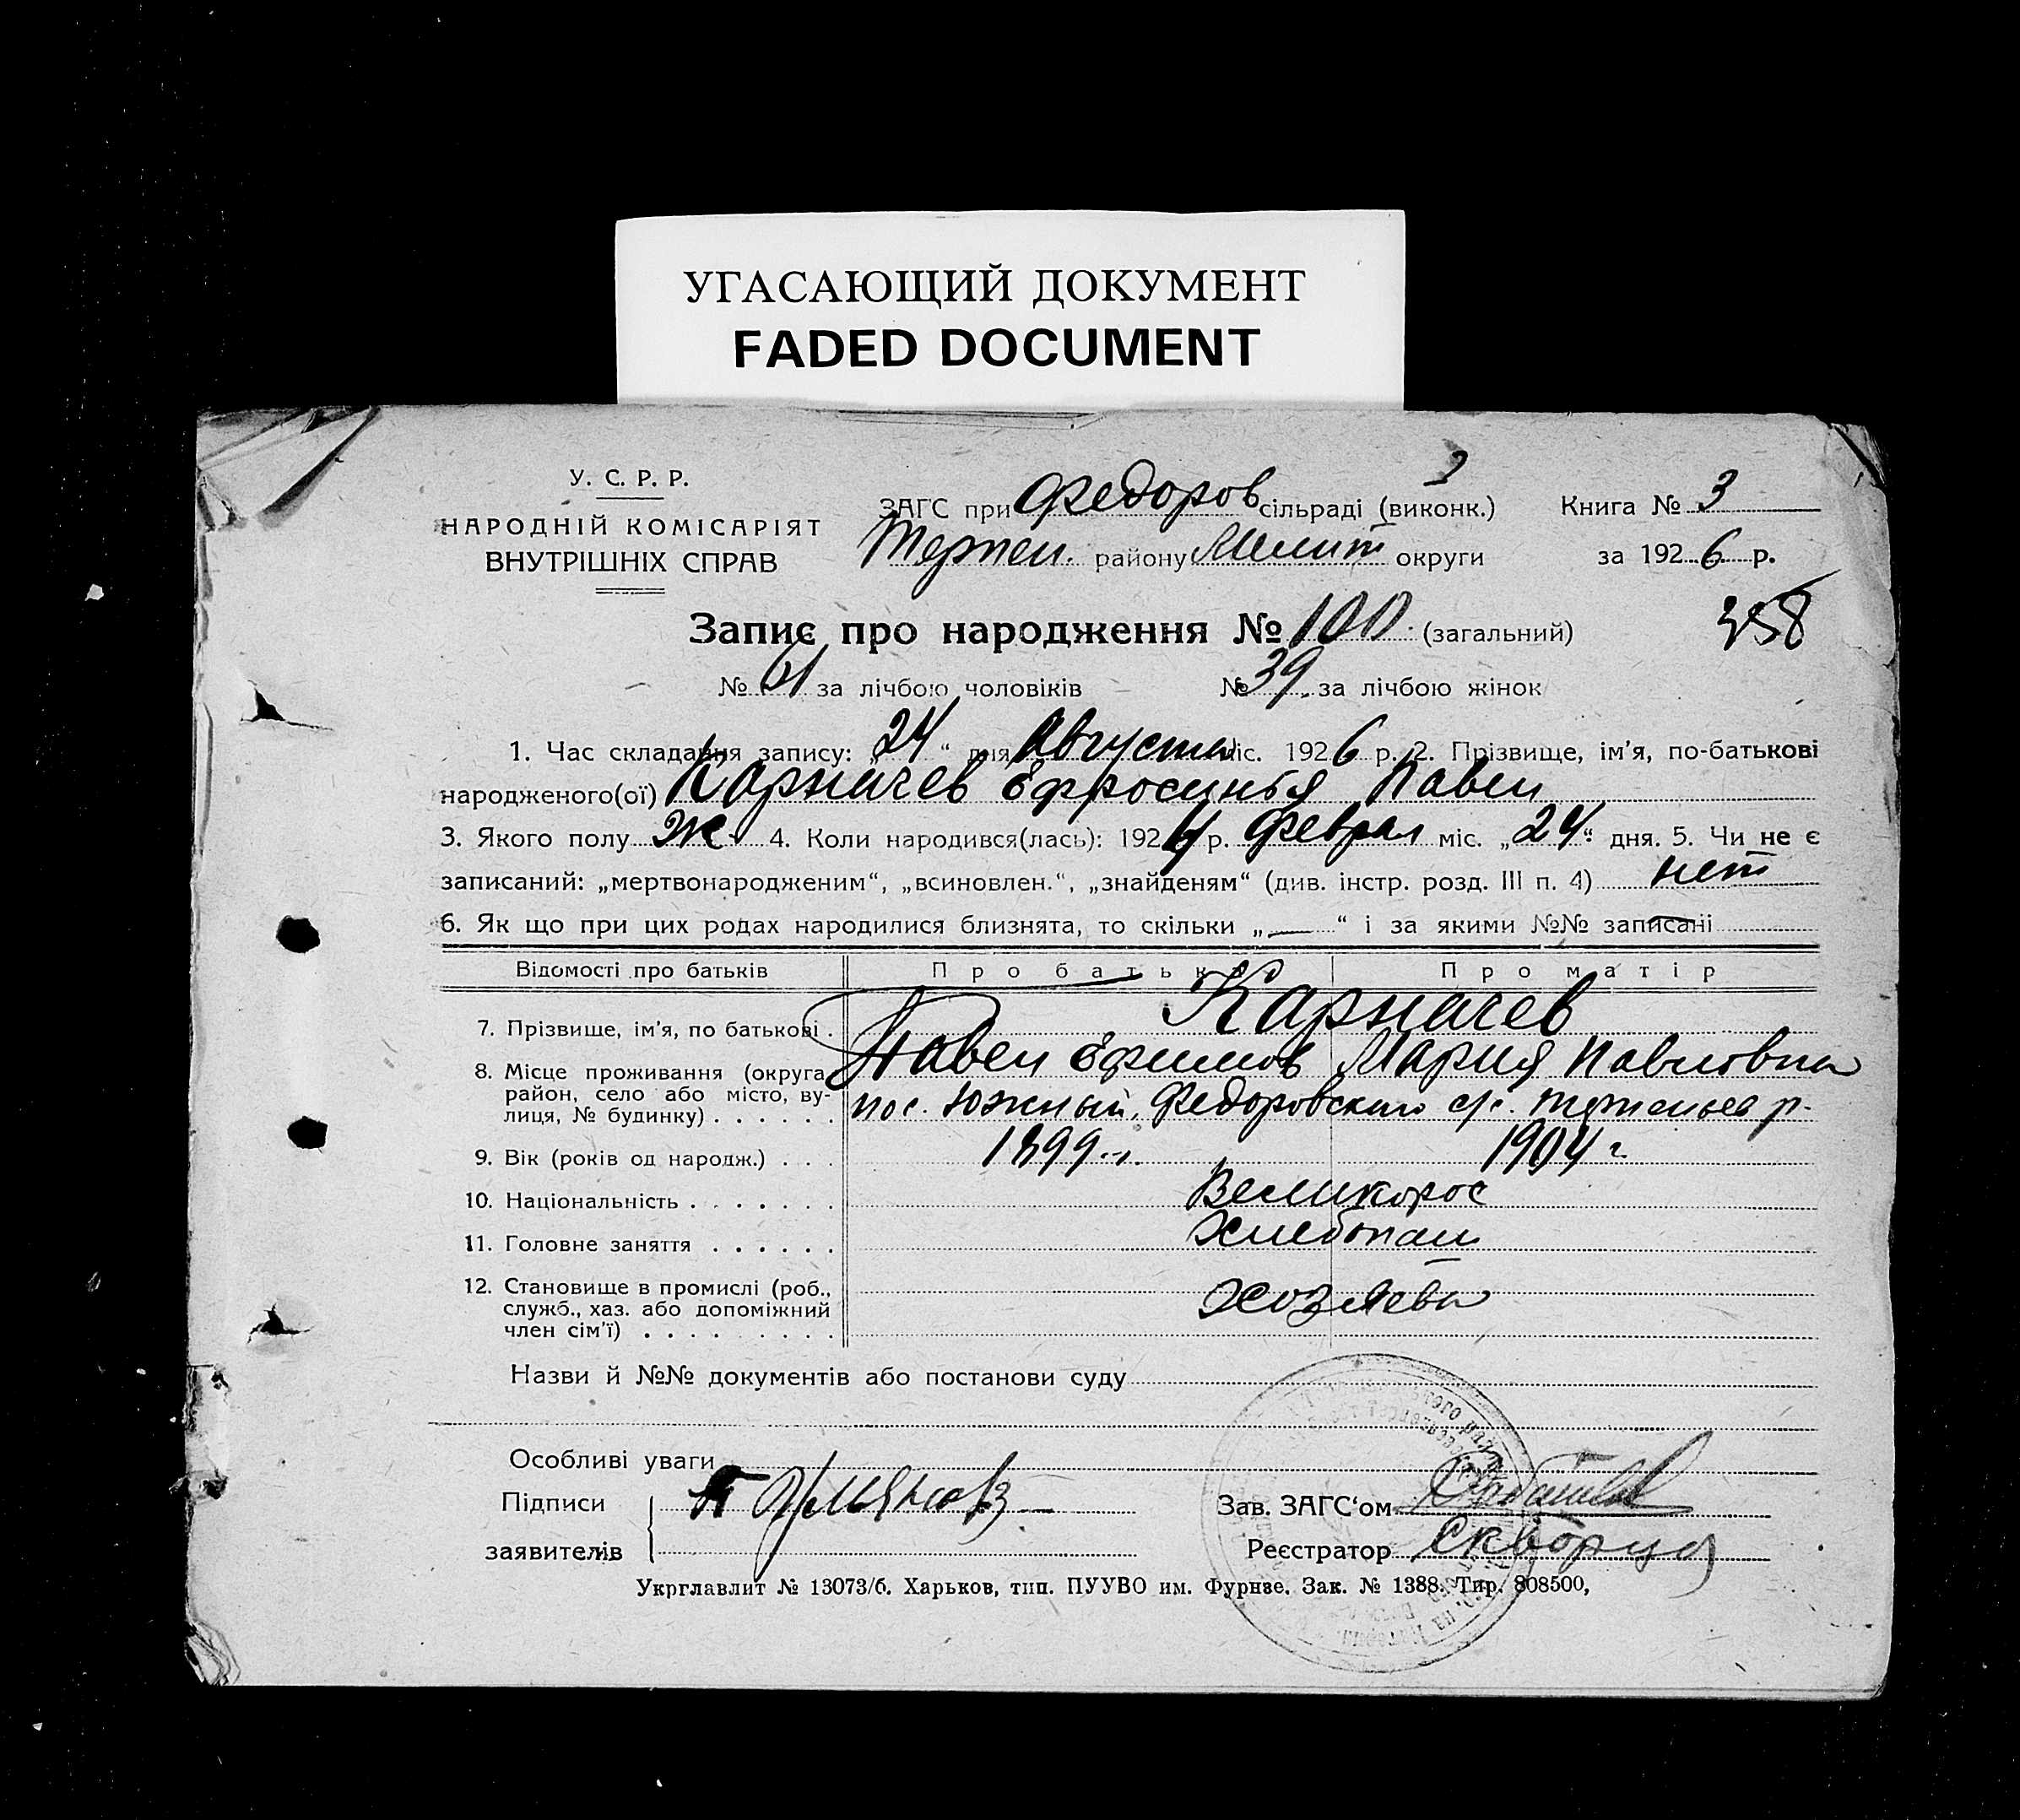 УГАСАЮЩИЙ ДОКУМЕНТ
FADED DOCUMENT
У. С. Р. Р.
НАРОДНІЙ КОМІСАРІЯТ
ВНУТРІШНІХ СПРАВ
3
ЗАГС при Федоров сільраді (виконк.) Книга № 3
Терпен. району Мелит округи за 1926 р.
Запис про народження № 100. (загальний) 358
№ 61 за лічбою чоловіків № 39 за лічбою жінок
1. Час складання запису: „24“ дня Августа міс. 1926 р. 2. Прізвище, ім’я, по-батькові
народженого(ої) Карначев Ефросинья Павел
3. Якого полу Ж 4. Коли народився(лась): 1924 р. Феврал міс. „24“ дня. 5. Чи не є
записаний: „мертвонародженим“, „всиновлен.“, „знайденям“ (див. інстр. розд. III п. 4) нет
6. Як що при цих родах народилися близнята, то скільки „—“ і за якими №№ записані —
Відомості про батьків Про батьк Про матір
7. Прізвище, ім’я, по батькові . Карначев
Павел Ефимов Мария Павловна
8. Місце проживання (округа,
район, село або місто, ву-
лиця, № будинку) . . . . . . пос. Южный, Федоровского с/с. р.
9. Вік (років од народж.) . . . 1899 г. 1904 г.
10. Національність . . . . . . . Великорос
11. Головне заняття . . . . . . Хлебопаш
12. Становище в промислі (роб.,
служб., хаз. або допоміжний
член сім’ї) . . . . . . . . . Хозяева
Назви й №№ документів або постанови суду
Особливі уваги
Підписи
заявителів
Зав. ЗАГС‘ом
Реєстратор Скворцов
Укрглавлит № 13073/б. Харьков, тип. ПУУВО им. Фурнзе. Зак. № 1388. Тир. 808500,